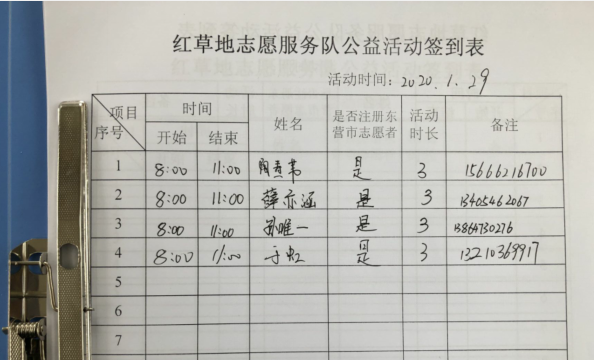 红草地志愿服务队公益活动签到表
活动时间:2020.1.29
项目 序号 时间 开始 结束 姓名 是否注册东营市志愿者 活动时长 备注
1 8:00 11:00 是 3 15666216700
2 8:00 11:00 薛亦涵 是 3 13405462067
3 8:00 11:00 孙唯一 是 3 13864730276
4 8:00 11:00 于虹 是 3 13210369917
5
6
7